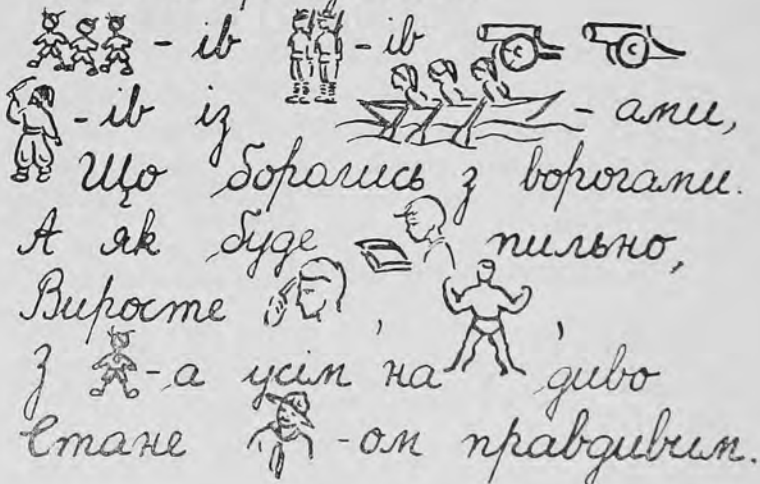 - ів - ів
- ів із - ами,
Що борались з ворогами.
А як буде пильно,
Виросте , ,
З -а усім на диво
Стане -ом правдивим.